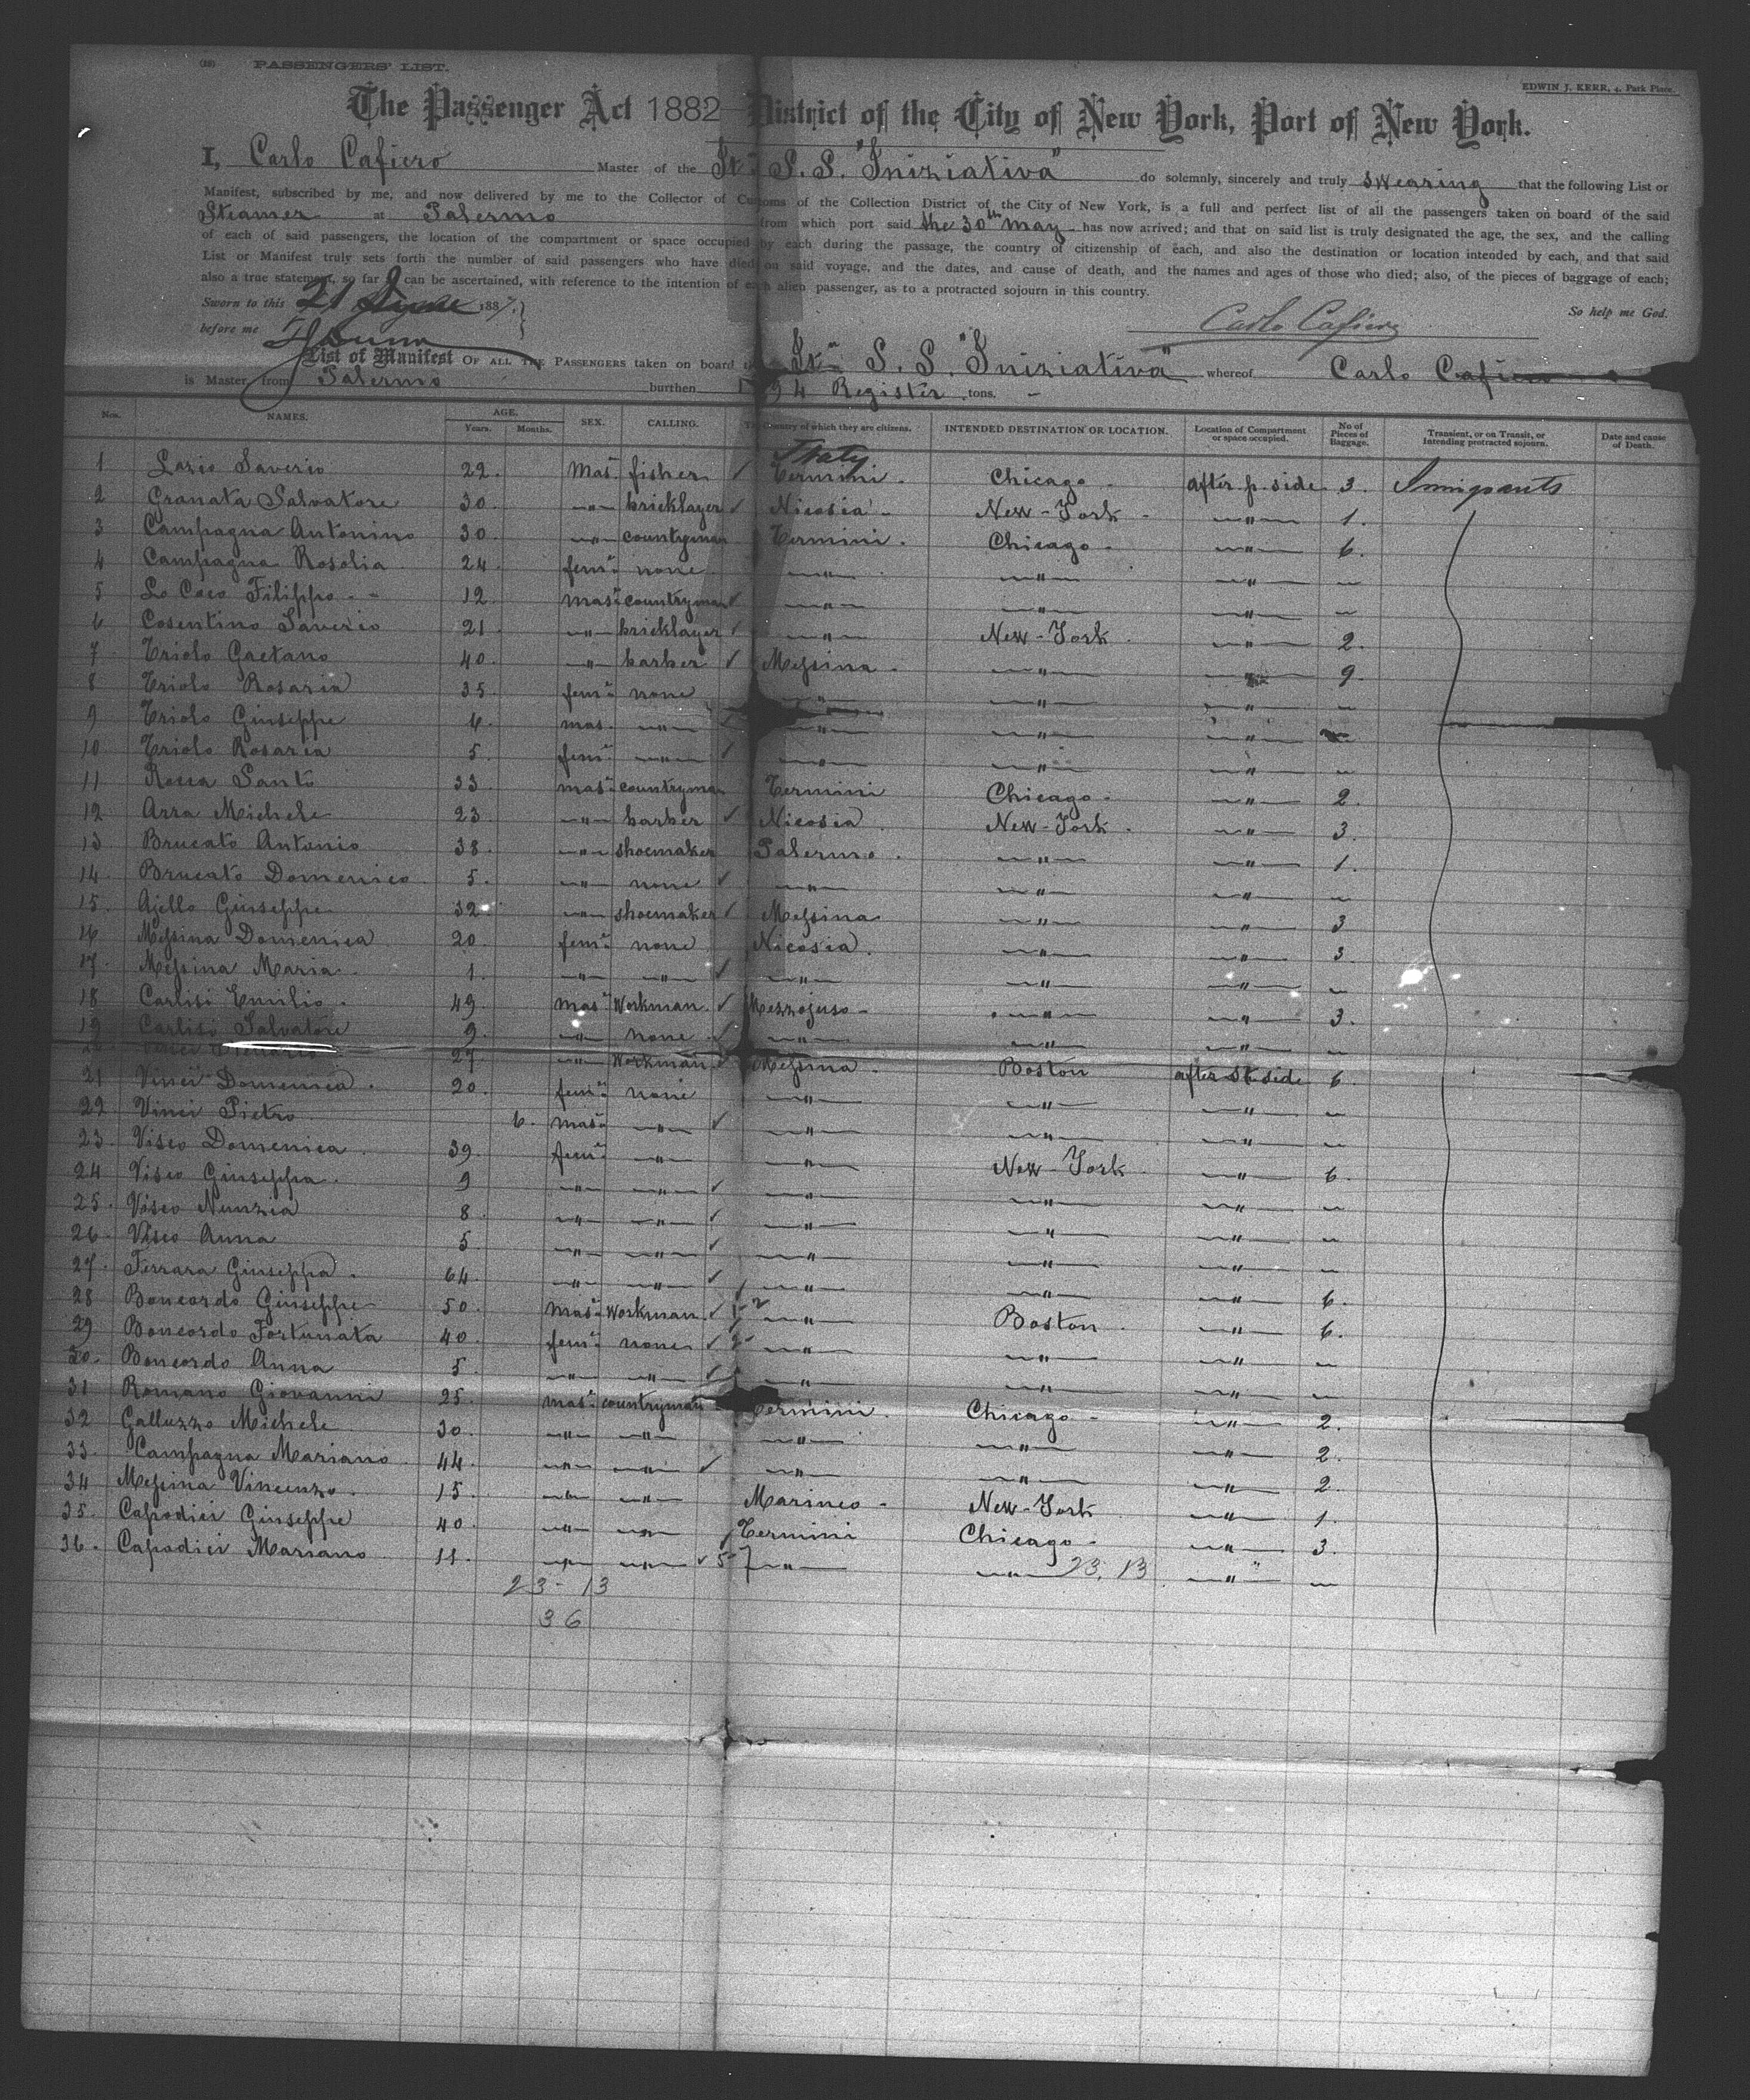 (18) PASSENGERS' LIST.
EDWIN J. KERR, 4, Park Place.
The Passenger Act 1882 District of the City of New York, Port of New York.
I, Carlo Cafiero Master of the It. S. S. "Iniziativa" do solemnly, sincerely and truly swearing that the following List or
Manifest, subscribed by me, and now delivered by me to the Collector of Customs of the Collection District of the City of New York, is a full and perfect list of all the passengers taken on board of the said
Steamer at Palermo from which port said the 30th May has now arrived; and that on said list is truly designated the age, the sex, and the calling
of each of said passengers, the location of the compartment or space occupied by each during the passage, the country of citizenship of each, and also the destination or location intended by each, and that said
List or Manifest truly sets forth the number of said passengers who have died on said voyage, and the dates, and cause of death, and the names and ages of those who died; also, of the pieces of baggage of each;
also a true statement, so far as can be ascertained, with reference to the intention of each alien passenger, as to a protracted sojourn in this country.
Sworn to this 21 June 1887. So help me God.
before me Carlo Cafiero
List of Manifest OF ALL THE PASSENGERS taken on board the It. S. S. "Iniziativa" whereof Carlo Cafiero
is Master, from Palermo burthen Register tons.
Nos. NAMES. AGE. Years. Months. SEX. CALLING. The Country of which they are citizens. INTENDED DESTINATION OR LOCATION. Location of Compartment or space occupied. No of Pieces of Baggage. Transient, or on Transit, or Intending protracted sojourn. Date and cause of Death.
Italy
1 Lazio Saverio 22. Mas. fisher Termini. Chicago after p. side 3. Immigrants
2 Granata Salvatore 30. " bricklayer Nicosia New-York " 1.
3 Campagna Antonino 30. " countryman Termini. Chicago " 6.
4 Campagna Rosolia 24. fem. none " " " "
5 Lo Coco Filippo 12 mas. countryman " " " "
6 Cosentino Saverio 21 " bricklayer " New-York " 2.
7 Triolo Gaetano 40. " barber Messina " " 9.
8 Triolo Rosaria 35. fem. none " " " "
9 Triolo Giuseppe 6. mas. " " " " "
10 Triolo Rosaria 5. fem. " " " " "
11 Rocca Santo 33. mas. countryman Termini Chicago " 2.
12 Arra Michele 23. " barber Nicosia New-York " 3.
13 Brucato Antonio 38. " shoemaker Palermo " " 1.
14. Brucato Domenico 5. " none " " " "
15. Ajello Giuseppe 32 " shoemaker Messina " " 3
16 Messina Domenica 20. fem. none Nicosia. " " 3.
17. Messina Maria 1. " " " " " "
18 Carlisi Emilio 49. mas. Workman Mezzojuso " " 3.
19 Carlisi Salvatore 9. " none " " " "
27. " Workman Messina. Boston after St. side 6.
21 Vinci Domenica 20. fem. none " " " "
22 Vinci Pietro 6. mas. " " " " "
23. Visco Domenica 39. fem. " " New-York " 6.
24 Visco Giuseppa 9 " " " " " "
25. Visco Nunzia 8. " " " " " "
26. Visco Anna 5. " " " " " "
27. Ferrara Giuseppa 64. " " " " " 6.
28 Boncordo Giuseppe 50. mas. Workman " Boston " 6.
29 Boncordo Fortunata 40. fem. none " " " "
30. Boncordo Anna 5. " " " " " "
31 Romano Giovanni 25. mas. countryman Termini. Chicago " 2.
32 Galluzzo Michele 30. " " " " " 2.
33. Campagna Mariano 44. " " " " " 2.
34 Messina Vincenzo 15. " " Marineo New-York " 1.
35. Capodici Giuseppe 40. " " Termini Chicago " 3.
36. Capodici Mariano 11. " " 5 " " 23. 13 " "
23 - 13
36